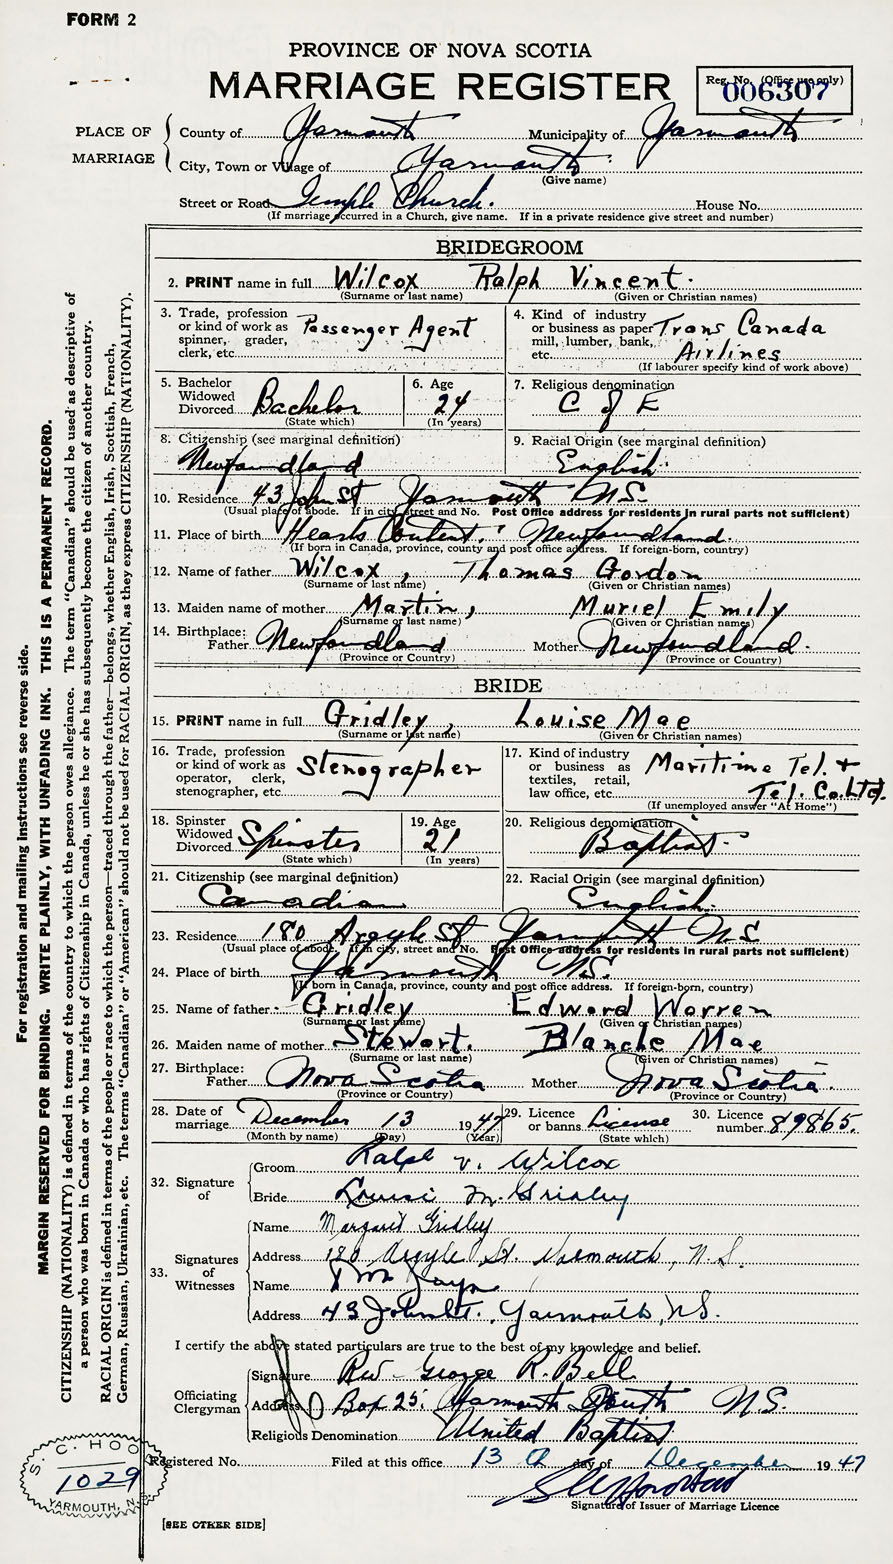 FORM 2
PROVINCE OF NOVA SCOTIA
MARRIAGE REGISTER
Reg. No. (Office use only)
006307
PLACE OF MARRIAGE
County of Yarmouth Municipality of Yarmouth
City, Town or Village of Yarmouth
(Give name)
Street or Road Temple Church. House No.
(If marriage occurred in a Church, give name. If in a private residence give street and number)
BRIDEGROOM
2. PRINT name in full Wilcox Ralph Vincent.
(Surname or last name) (Given or Christian names)
3. Trade, profession or kind of work as spinner, grader, clerk, etc. Passenger Agent
4. Kind of industry or business as paper mill, lumber, bank, etc. Trans Canada Airlines
(If labourer specify kind of work above)
5. Bachelor Widowed Divorced Bachelor
(State which)
6. Age 24
(In years)
7. Religious denomination C of E
8. Citizenship (see marginal definition) Newfoundland
9. Racial Origin (see marginal definition) English.
10. Residence 43 John St Yarmouth N.S.
(Usual place of abode. If in city, street and No. Post Office address for residents in rural parts not sufficient)
11. Place of birth Hearts Content. Newfoundland.
(If born in Canada, province, county and post office address. If foreign-born, country)
12. Name of father Wilcox, Thomas Gordon
(Surname or last name) (Given or Christian names)
13. Maiden name of mother Martin, Muriel Emily
(Surname or last name) (Given or Christian names)
14. Birthplace: Father Newfoundland Mother Newfoundland.
(Province or Country) (Province or Country)
BRIDE
15. PRINT name in full Gridley, Louise Mae
(Surname or last name) (Given or Christian names)
16. Trade, profession or kind of work as operator, clerk, stenographer, etc. Stenographer
17. Kind of industry or business as textiles, retail, law office, etc. Maritime Tel. + Tel. Co. Ltd.
(If unemployed answer "At Home")
18. Spinster Widowed Divorced Spinster
(State which)
19. Age 21
(In years)
20. Religious denomination Baptist.
21. Citizenship (see marginal definition) Canadian
22. Racial Origin (see marginal definition) English.
23. Residence 180 Argyle St Yarmouth N.S.
(Usual place of abode. If in city, street and No. Post Office address for residents in rural parts not sufficient)
24. Place of birth Yarmouth N.S.
(If born in Canada, province, county and post office address. If foreign-born, country)
25. Name of father Gridley Edward Warren
(Surname or last name) (Given or Christian names)
26. Maiden name of mother Stewart. Blanche Mae
(Surname or last name) (Given or Christian names)
27. Birthplace: Father Nova Scotia Mother Nova Scotia.
(Province or Country) (Province or Country)
28. Date of marriage December 13 1947
(Month by name) (Day) (Year)
29. Licence or banns License
(State which)
30. Licence number 89865.
32. Signature of
Groom Ralph V. Wilcox
Bride Louise M. Gridley
33. Signatures of Witnesses
Name Margaret Gridley
Address 180 Argyle St. Yarmouth, N.S.
Name
Address 43 John St. Yarmouth, N.S.
I certify the above stated particulars are true to the best of my knowledge and belief.
Officiating Clergyman
Signature Rev George R. Bell
Address Box 25. Yarmouth South N.S.
Religious Denomination United Baptist
Registered No. Filed at this office 13 day of December 1947
Signature of Issuer of Marriage Licence
[SEE OTHER SIDE]
S. C. HOO
1029
YARMOUTH, N.
For registration and mailing instructions see reverse side.
MARGIN RESERVED FOR BINDING. WRITE PLAINLY, WITH UNFADING INK. THIS IS A PERMANENT RECORD.
CITIZENSHIP (NATIONALITY) is defined in terms of the country to which the person owes allegiance. The term "Canadian" should be used as descriptive of
a person who was born in Canada or who has rights of Citizenship in Canada, unless he or she has subsequently become the citizen of another country.
RACIAL ORIGIN is defined in terms of the people or race to which the person—traced through the father—belongs, whether English, Irish, Scottish, French,
German, Russian, Ukrainian, etc. The terms "Canadian" or "American" should not be used for RACIAL ORIGIN, as they express CITIZENSHIP (NATIONALITY).